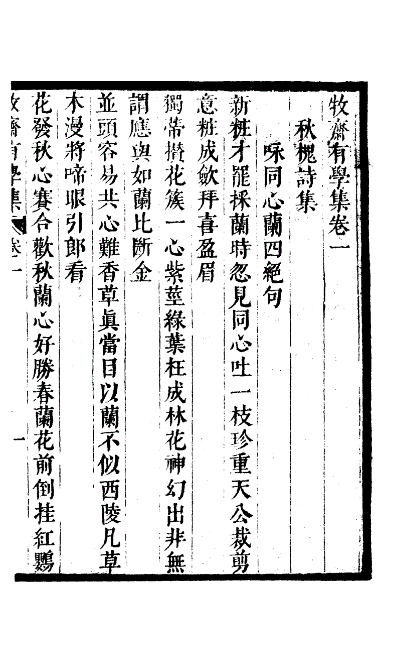 牧齋有學集卷一
秋槐詩集
咏同心蘭四絕句
新粧才罷採蘭時忽見同心吐一枝珍重天公裁剪
意粧成斂拜喜盈眉
獨蒂攢花簇一心紫莖綠葉枉成林花神幻出非無
謂應與如蘭比斷金
並頭容易共心難香草眞當目以蘭不似西陵凡草
木漫將啼眼引郎看
花發秋心賽合歡秋蘭心好勝春蘭花前倒挂紅鸚
牧齋有學集 卷一 一